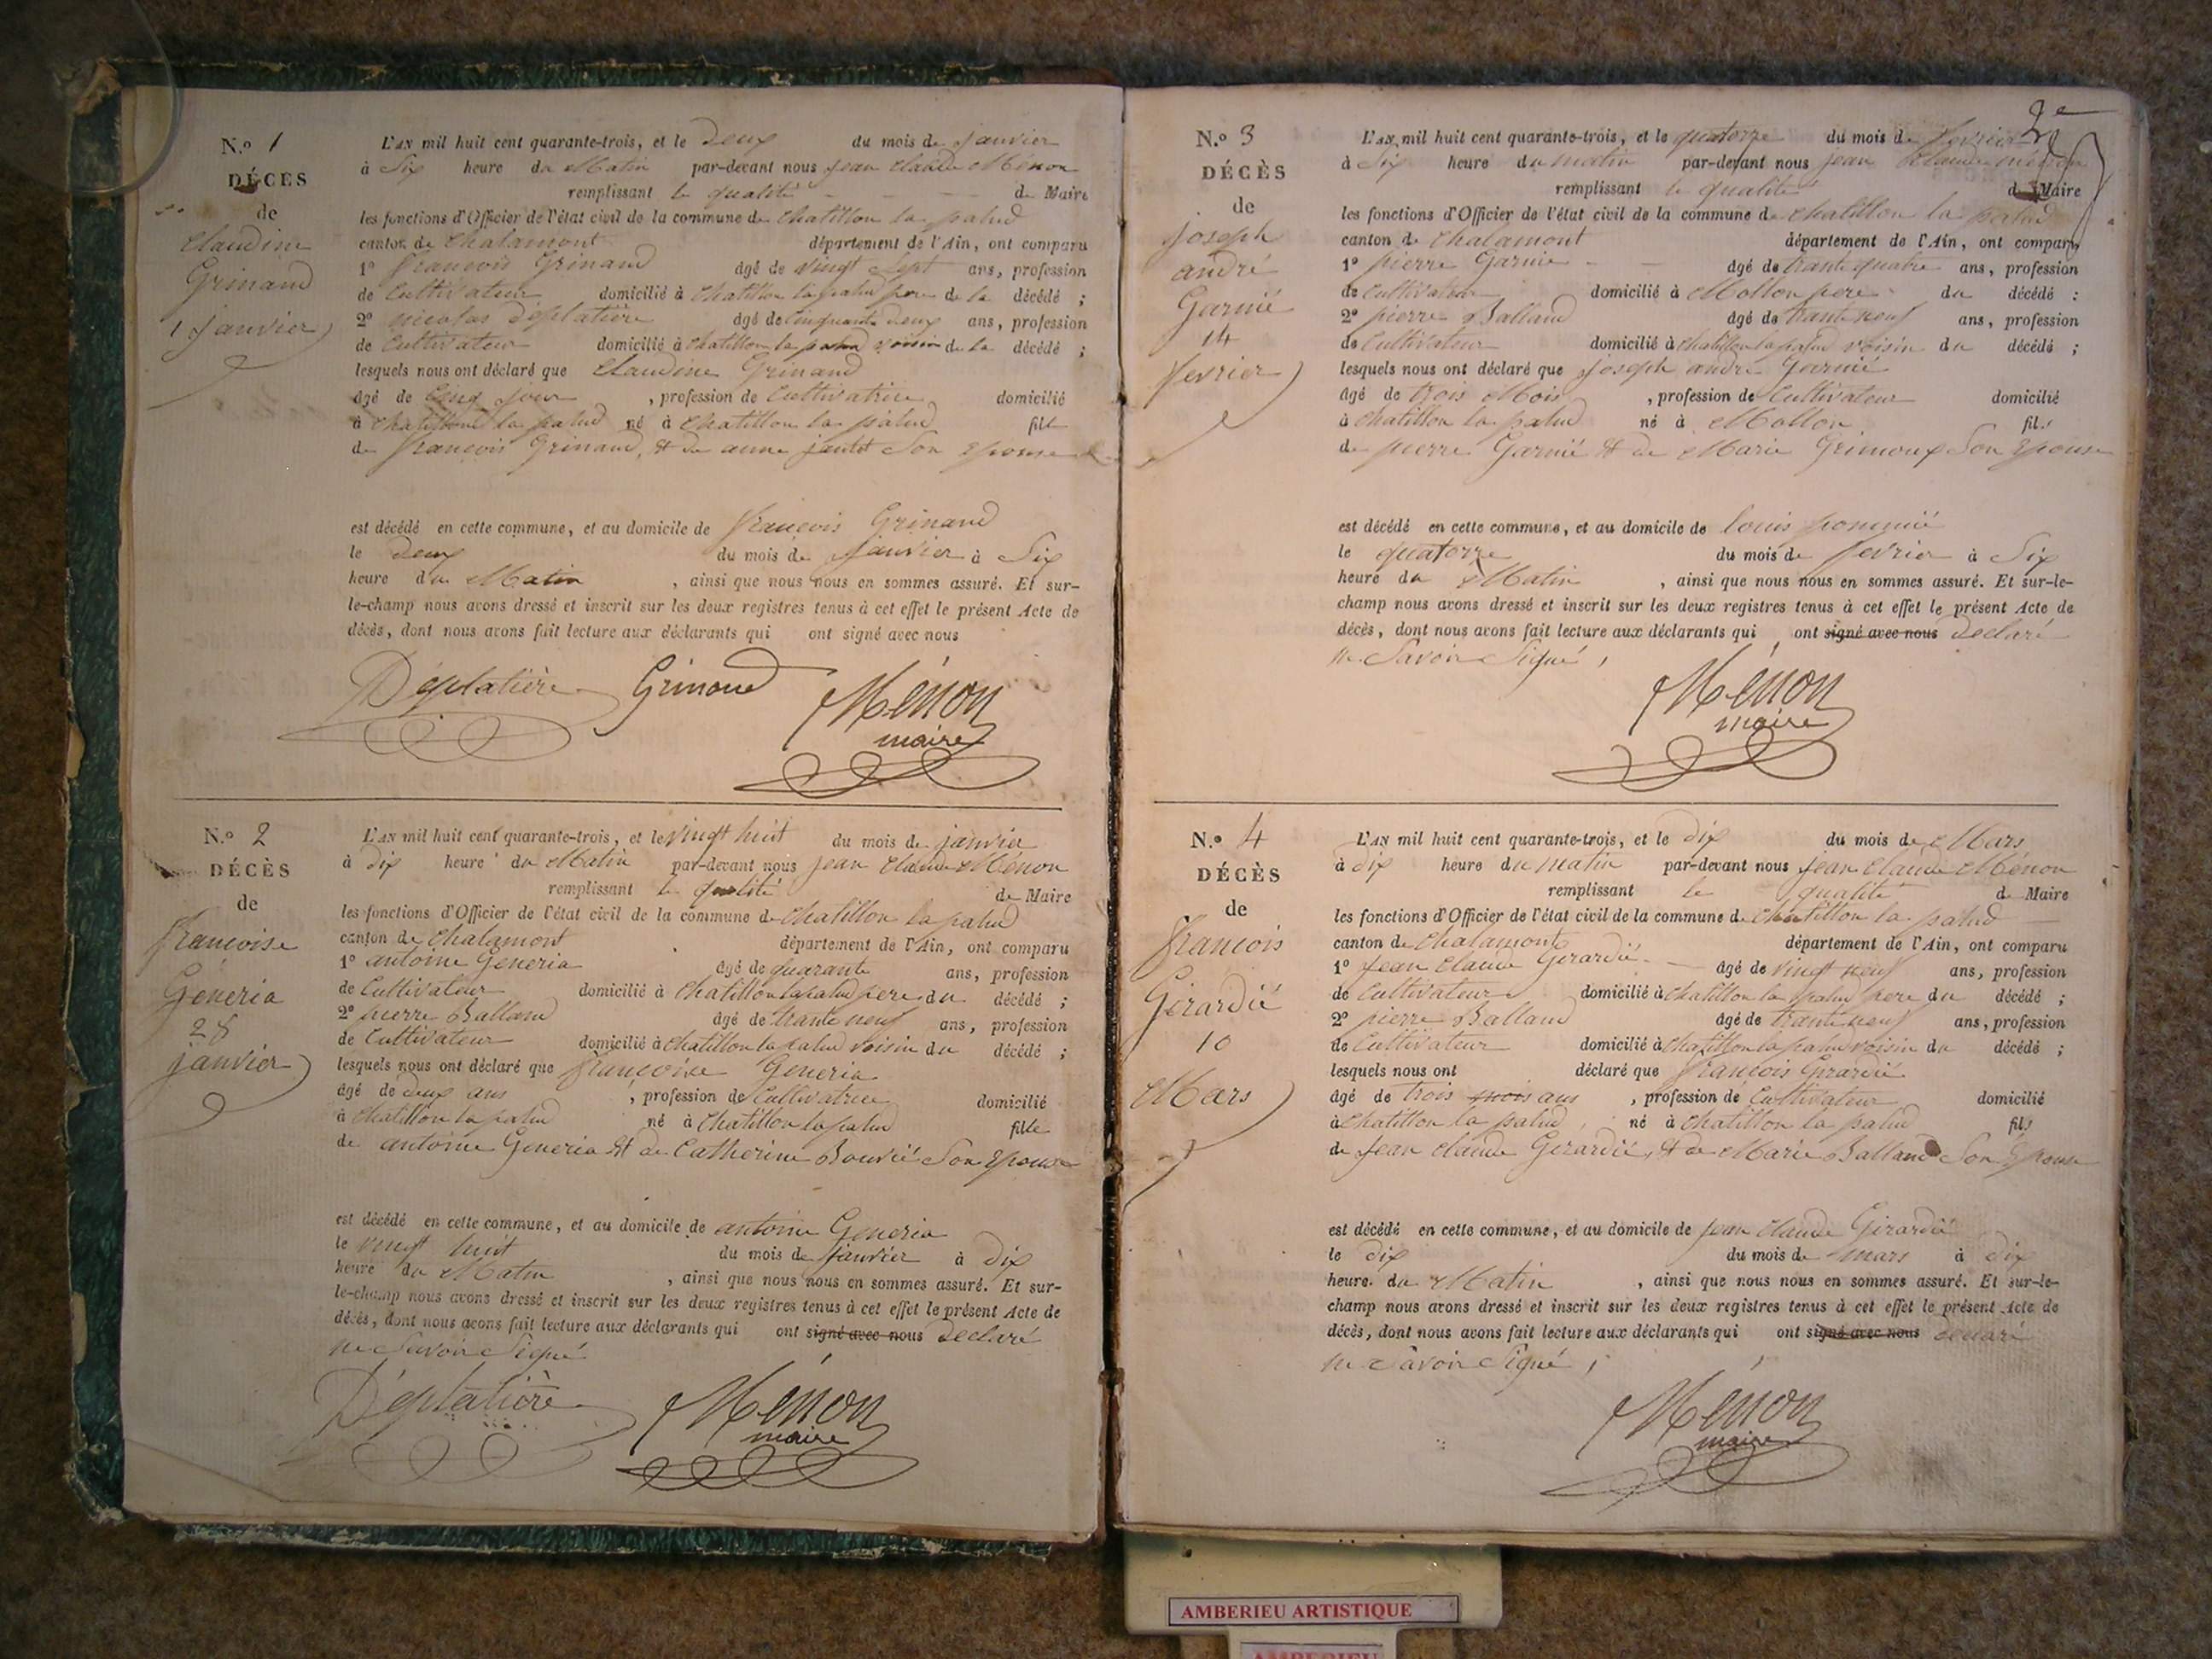 N.o 1
DÉCÈS
de
Claudine
Grinand
1 janvier
L'AN mil huit cent quarante-trois, et le Deux du mois de janvier
à Six heure du Matin par-devant nous jean Claude Ménon
remplissant le qualité de Maire
les fonctions d'Officier de l'état civil de la commune de Chatillon la palud
canton de Chalamont département de l'Ain, ont comparu
1° francois Grinand âgé de vingt Sept ans, profession
de Cultivateur domicilié à Chatillon la palud pere de la décédé ;
2° nicolas Deplatière âgé de Cinquante deux ans, profession
de Cultivateur domicilié à Chatillon la palud voisin de la décédé ;
lesquels nous ont déclaré que Claudine Grinand
âgé de Cinq jour , profession de Cultivatrice domicilié
à Chatillon la palud né à Chatillon la palud fille
de francois Grinand, et de anne Son Epouse
est décédé en cette commune, et au domicile de francois Grinand
le deux du mois de janvier à Six
heure du Matin , ainsi que nous nous en sommes assuré. Et sur-
le-champ nous avons dressé et inscrit sur les deux registres tenus à cet effet le présent Acte de
décès, dont nous avons fait lecture aux déclarants qui ont signé avec nous
Déplatière Grinand Ménon
maire
N.o 2
DÉCÈS
de
francoise
Géneria
28
janvier
L'AN mil huit cent quarante-trois, et le vingt huit du mois de janvier
à dix heure du Matin par-devant nous jean Claude Ménon
remplissant le qualité de Maire
les fonctions d'Officier de l'état civil de la commune de Chatillon la palud
canton de Chalamont département de l'Ain, ont comparu
1° antoine Géneria âgé de quarante ans, profession
de Cultivateur domicilié à Chatillon la palud pere du décédé ;
2° pierre Balland âgé de trante neuf ans, profession
de Cultivateur domicilié à Chatillon la palud voisin du décédé ;
lesquels nous ont déclaré que francoise Generia
âgé de deux ans , profession de Cultivatrice domicilié
à Chatillon la palud né à Chatillon la palud fille
de antoine Generia et de Catherine Bouvié Son Epouse
est décédé en cette commune, et au domicile de antoine Generia
le vingt huit du mois de janvier à dix
heure du Matin , ainsi que nous nous en sommes assuré. Et sur-
le-champ nous avons dressé et inscrit sur les deux registres tenus à cet effet le présent Acte de
décès, dont nous avons fait lecture aux déclarants qui ont signé avec nous Declaré
ne Savoir Signé
Déplatière Ménon
maire
2e
N.o 3
DÉCÈS
de
joseph
andré
Garnié
14
fevrier
L'AN mil huit cent quarante-trois, et le quatorze du mois de fevrier
à Six heure du matin par-devant nous jean Claude Ménon
remplissant le qualité de Maire
les fonctions d'Officier de l'état civil de la commune de Chatillon la palud
canton de Chalamont département de l'Ain, ont comparu
1° pierre Garnié âgé de trante quatre ans, profession
de Cultivateur domicilié à Mollon pere du décédé ;
2° pierre Balland âgé de trante neuf ans, profession
de Cultivateur domicilié à Chatillon la palud voisin du décédé ;
lesquels nous ont déclaré que joseph andré Garnié
âgé de trois Mois , profession de Cultivateur domicilié
à Chatillon la palud né à Mollon fils
de pierre Garnié et de Marie Grimoux Son Epouse
est décédé en cette commune, et au domicile de louis
le quatorze du mois de fevrier à Six
heure du Matin , ainsi que nous nous en sommes assuré. Et sur-le-
champ nous avons dressé et inscrit sur les deux registres tenus à cet effet le présent Acte de
décès, dont nous avons fait lecture aux déclarants qui ont signé avec nous Declaré
ne Savoir Signé,
Ménon
maire
N.o 4
DÉCÈS
de
francois
Girardié
10
Mars
L'AN mil huit cent quarante-trois, et le dix du mois de Mars
à dix heure du matin par-devant nous jean Claude Ménon
remplissant le qualité de Maire
les fonctions d'Officier de l'état civil de la commune de Chatillon la palud
canton de Chalamont département de l'Ain, ont comparu
1° jean Claude Girardié âgé de vingt neuf ans, profession
de Cultivateur domicilié à Chatillon la palud pere du décédé ;
2° pierre Balland âgé de trante neuf ans, profession
de Cultivateur domicilié à Chatillon la palud voisin du décédé ;
lesquels nous ont déclaré que francois Girardié
âgé de trois mois ans , profession de Cultivateur domicilié
à Chatillon la palud né à Chatillon la palud fils
de jean Claude Girardié, et de Marie Balland Son Epouse
est décédé en cette commune, et au domicile de jean Claude Girardié
le dix du mois de mars à dix
heure du Matin , ainsi que nous nous en sommes assuré. Et sur-le-
champ nous avons dressé et inscrit sur les deux registres tenus à cet effet le présent Acte de
décès, dont nous avons fait lecture aux déclarants qui ont signé avec nous déclaré
ne Savoir Signé,
Ménon
maire
AMBERIEU ARTISTIQUE
AMBERIEU